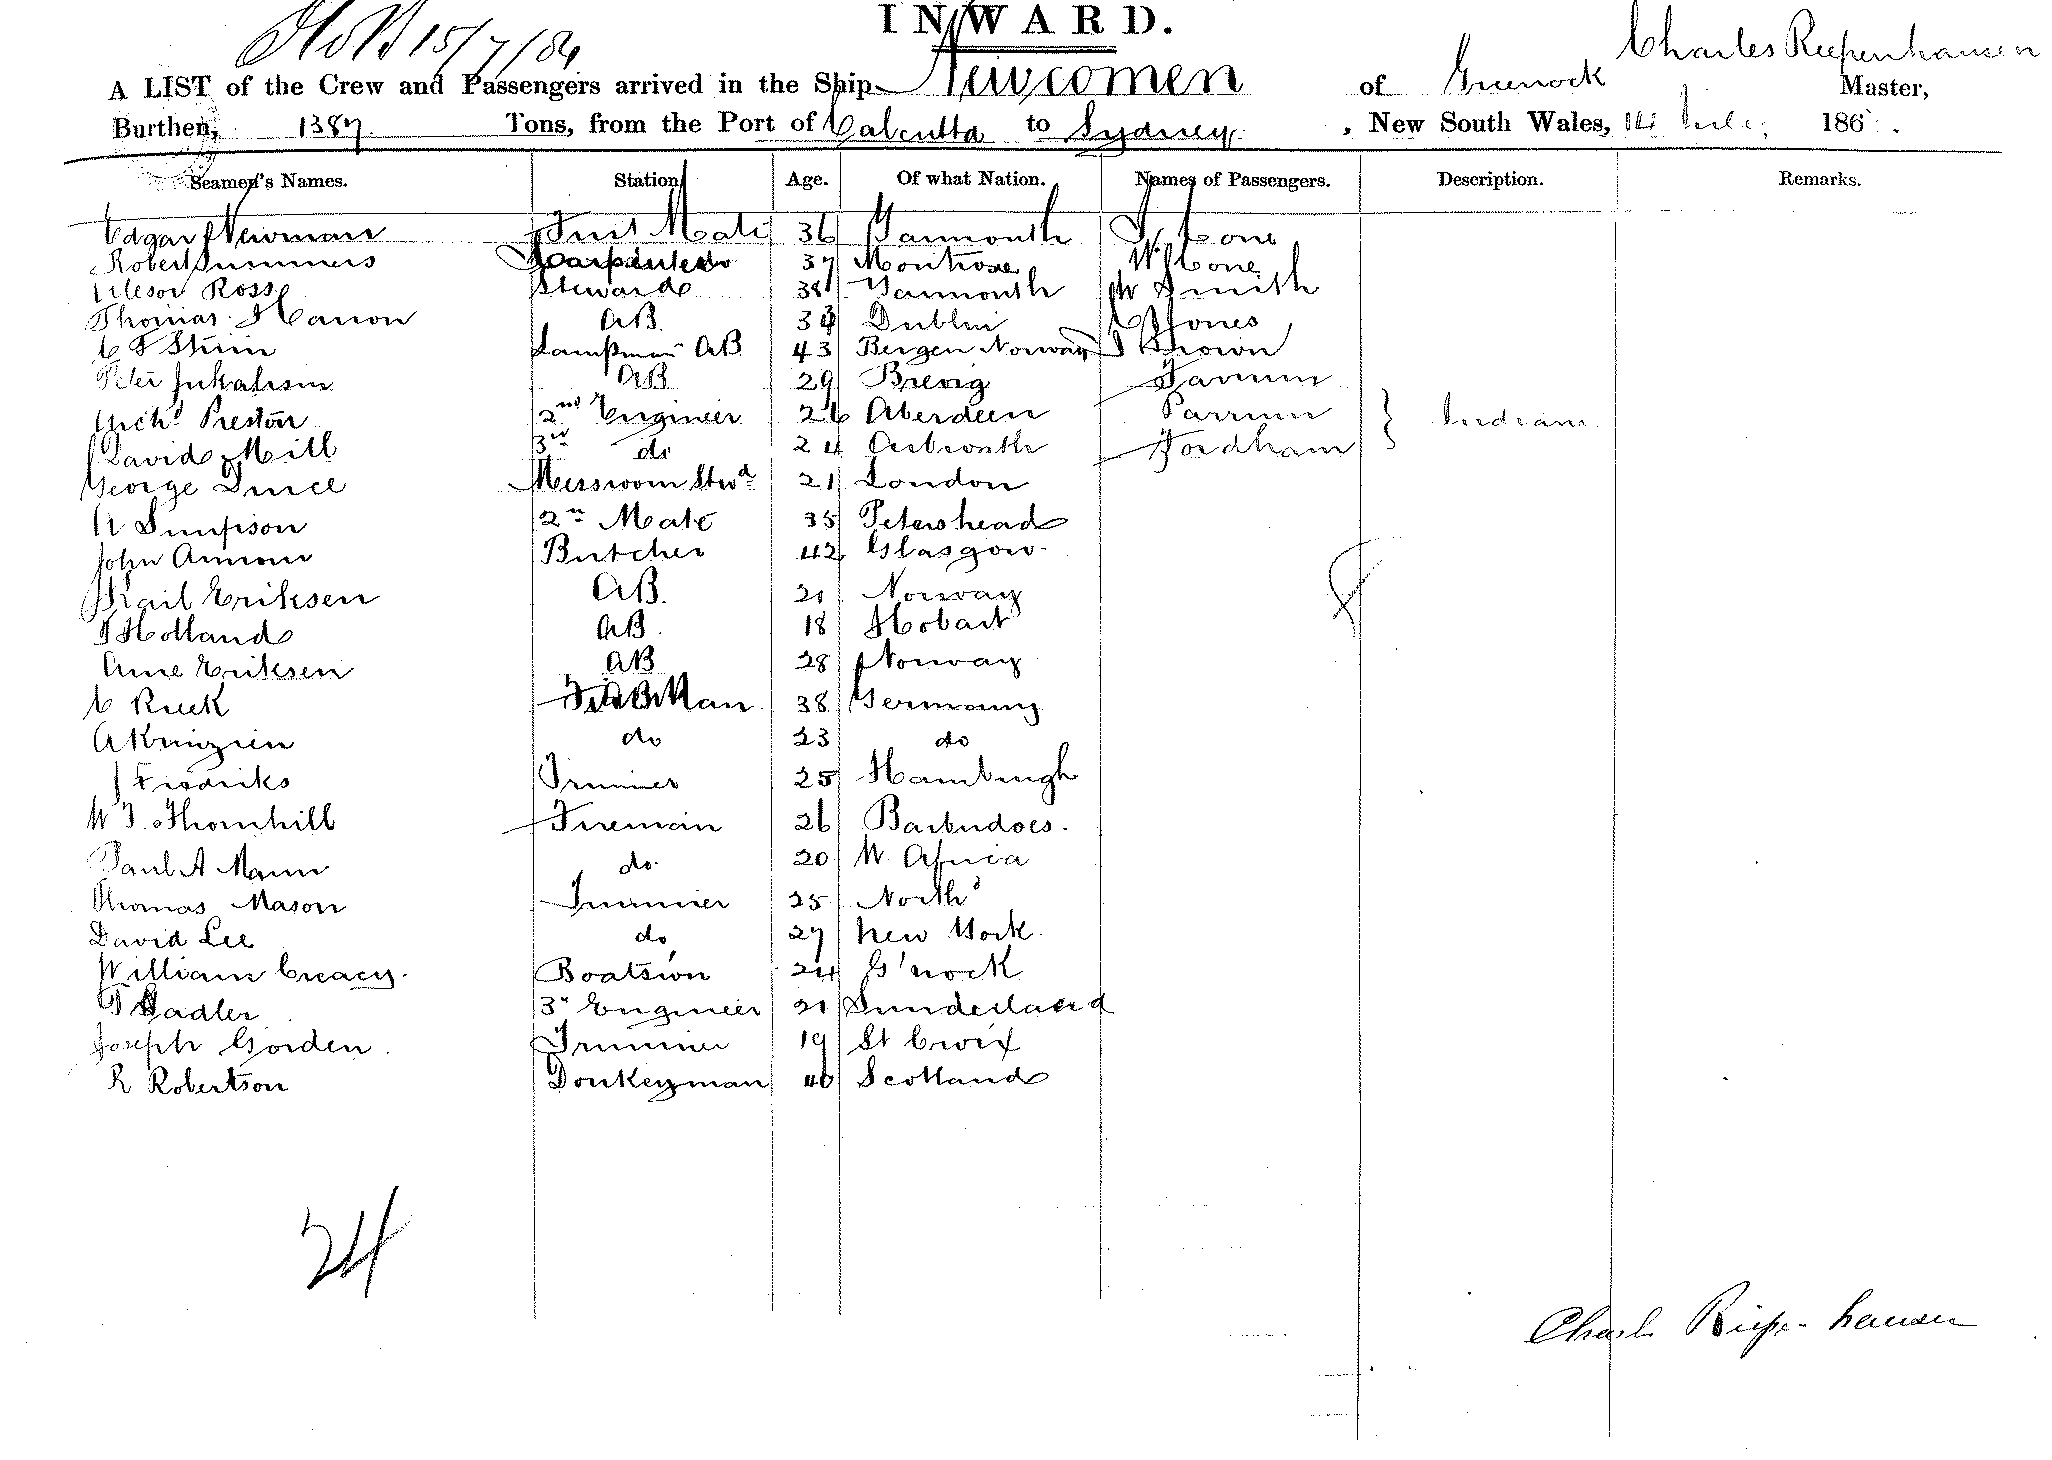 INWARD.
15/7/84
Charles Riepenhausen
A LIST of the Crew and Passengers arrived in the Ship Newcomen of Greenock Master,
Burthen, 1387 Tons, from the Port of Calcutta to Sydney, New South Wales, 14 July 186
Seamen's Names. Station Age. Of what Nation. Names of Passengers. Description. Remarks.
Edgar Newman First Mate 36 Yarmouth Cone
Robert Summers Carpenter 37 Montrose W Cone
Ross Steward 38 Yarmouth W Smith
Thomas Hanon AB 34 Dublin Jones
C Stein Lampman AB 43 Bergen Norway J Brown
Peter AB 29 Brevig
Archd Preston 2nd Engineer 26 Aberdeen } Indians
David Mill 3rd do 24 Arbroath Fordham
George Prince Messroom Stwd 21 London
Simpson 2nd Mate 35 Petershead
John Annan Butcher 42 Glasgow
Eriksen AB. 21 Norway
Holland AB. 18 Hobart
Arne Eriksen AB 28 Norway
C Rieck 38 Germany
A do 23 do
J Fredriks Trimmer 25 Hamburgh
W T. Thornhill Fireman 26 Barbudoes.
Paul A Mann do 20 W. Africa
Thomas Mason Trimmer 25 North
David Lee do 27 New York
William Creacy. Boatswn 24 G'nock
Sadler 3r Engineer 21 Sunderland
Joseph Gorden. Trimmer 19 St Croix
R Robertson Donkeyman 40 Scotland
24
Charles Riepenhausen